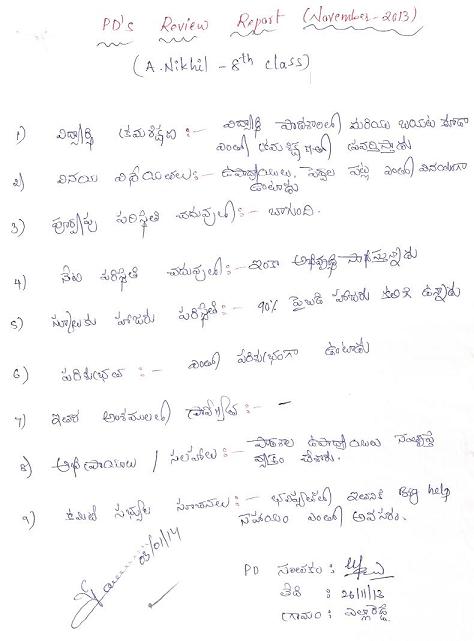 PD's Review Report (November-2013)
(A.Nikhil - 8th class)
1) విద్యార్థి క్రమశిక్షణ :- విద్యార్థి పాఠశాలలో మరియు బయట కూడా
ఎంతో క్రమశిక్షణతో
2) వినయ విధేయతలు :- ఉపాధ్యాయులు, పెద్దల పట్ల ఎంతో వినయంగా
ఉంటాడు
3) పూర్వపు పరిస్థితి చదువులో :- బాగుంది.
4) నేటి పరిస్థితి చదువులో :- ఇంకా అభివృద్ధి సాధిస్తున్నాడు
5) స్కూలుకు హాజరు పరిస్థితి :- 90% పైబడి హాజరు కలిగి ఉన్నాడు
6) పరిశుభ్రత :- ఎంతో పరిశుభ్రంగా ఉంటాడు
7) ఇతర అంశములలో :- -
8) అభిప్రాయాలు / సలహాలు :- పాఠశాల ఉపాధ్యాయులు సంతృప్తి
వ్యక్తం చేశారు.
9) కమిటి సభ్యుల సూచనలు :- భవిష్యత్తులో ఇతనికి Big help
సహాయం ఎంతో అవసరం.
03/01/14
PD సంతకం :
తేది : 26/11/13
గ్రామం : ఎల్లారెడ్డి